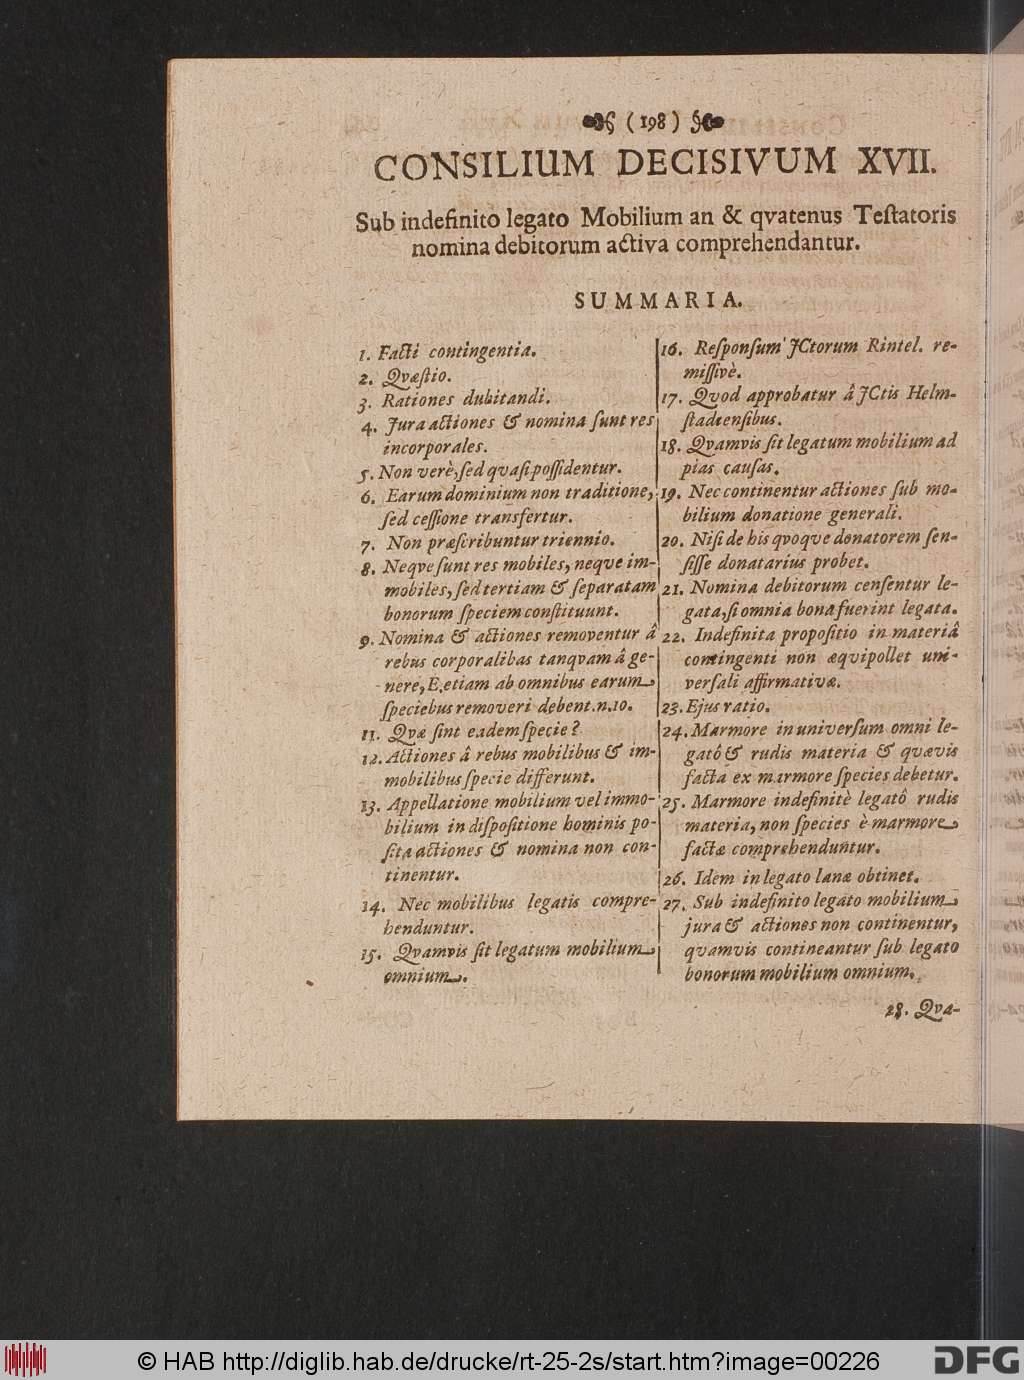 (198)
CONSILIUM DECISIVUM XVII.
Sub indefinito legato Mobilium an & qvatenus Teſtatoris
nomina debitorum activa comprehendantur.
SUMMARIA.
1. Facti contingentia.
2. Qvæſtio.
3. Rationes dubitandi.
4. Jura actiones & nomina ſunt res
incorporales.
5. Non verè, ſed quaſi poſſidentur.
6. Earum dominium non traditione,
ſed ceſſione transfertur.
7. Non præſcribuntur triennio.
8. Neqve ſunt res mobiles, neque im-
mobiles, ſed tertiam & ſeparatam
bonorum ſpeciem conſtituunt.
9. Nomina & actiones removentur â
rebus corporalibus tanqvam â ge-
nere, E. etiam ab omnibus earum
ſpeciebus removeri debent. n. 10.
11. Qvæ ſint eadem ſpecie?
12. Actiones â rebus mobilibus & im-
mobilibus ſpecie differunt.
13. Appellatione mobilium vel immo-
bilium in diſpoſitione hominis po-
ſita actiones & nomina non con-
tinentur.
14. Nec mobilibus legatis compre-
henduntur.
15. Qvamvis ſit legatum mobilium
omnium.
16. Reſponſum JCtorum Rintel. re-
miſſivè.
17. Quod approbatur â JCtis Helm-
ſtadienſibus.
18. Qvamvis ſit legatum mobilium ad
pias cauſas.
19. Nec continentur actiones ſub mo-
bilium donatione generali.
20. Niſi de his qvoque donatorem ſen-
ſiſſe donatarius probet.
21. Nomina debitorum cenſentur le-
gata, ſi omnia bona fuerint legata.
22. Indefinita propoſitio in materiâ
contingenti non æquipollet uni-
verſali affirmativæ.
23. Ejus ratio.
24. Marmore in univerſum omni le-
gatô & rudis materia & quævis
facta ex marmore ſpecies debetur.
25. Marmore indefinitè legatô rudis
materia, non ſpecies è marmore
factæ comprehenduntur.
26. Idem in legato lanæ obtinet.
27. Sub indefinito legato mobilium
jura & actiones non continentur,
quamvis contineantur ſub legato
bonorum mobilium omnium.
28. Qva-
© HAB http://diglib.hab.de/drucke/rt-25-2s/start.htm?image=00226
DFG